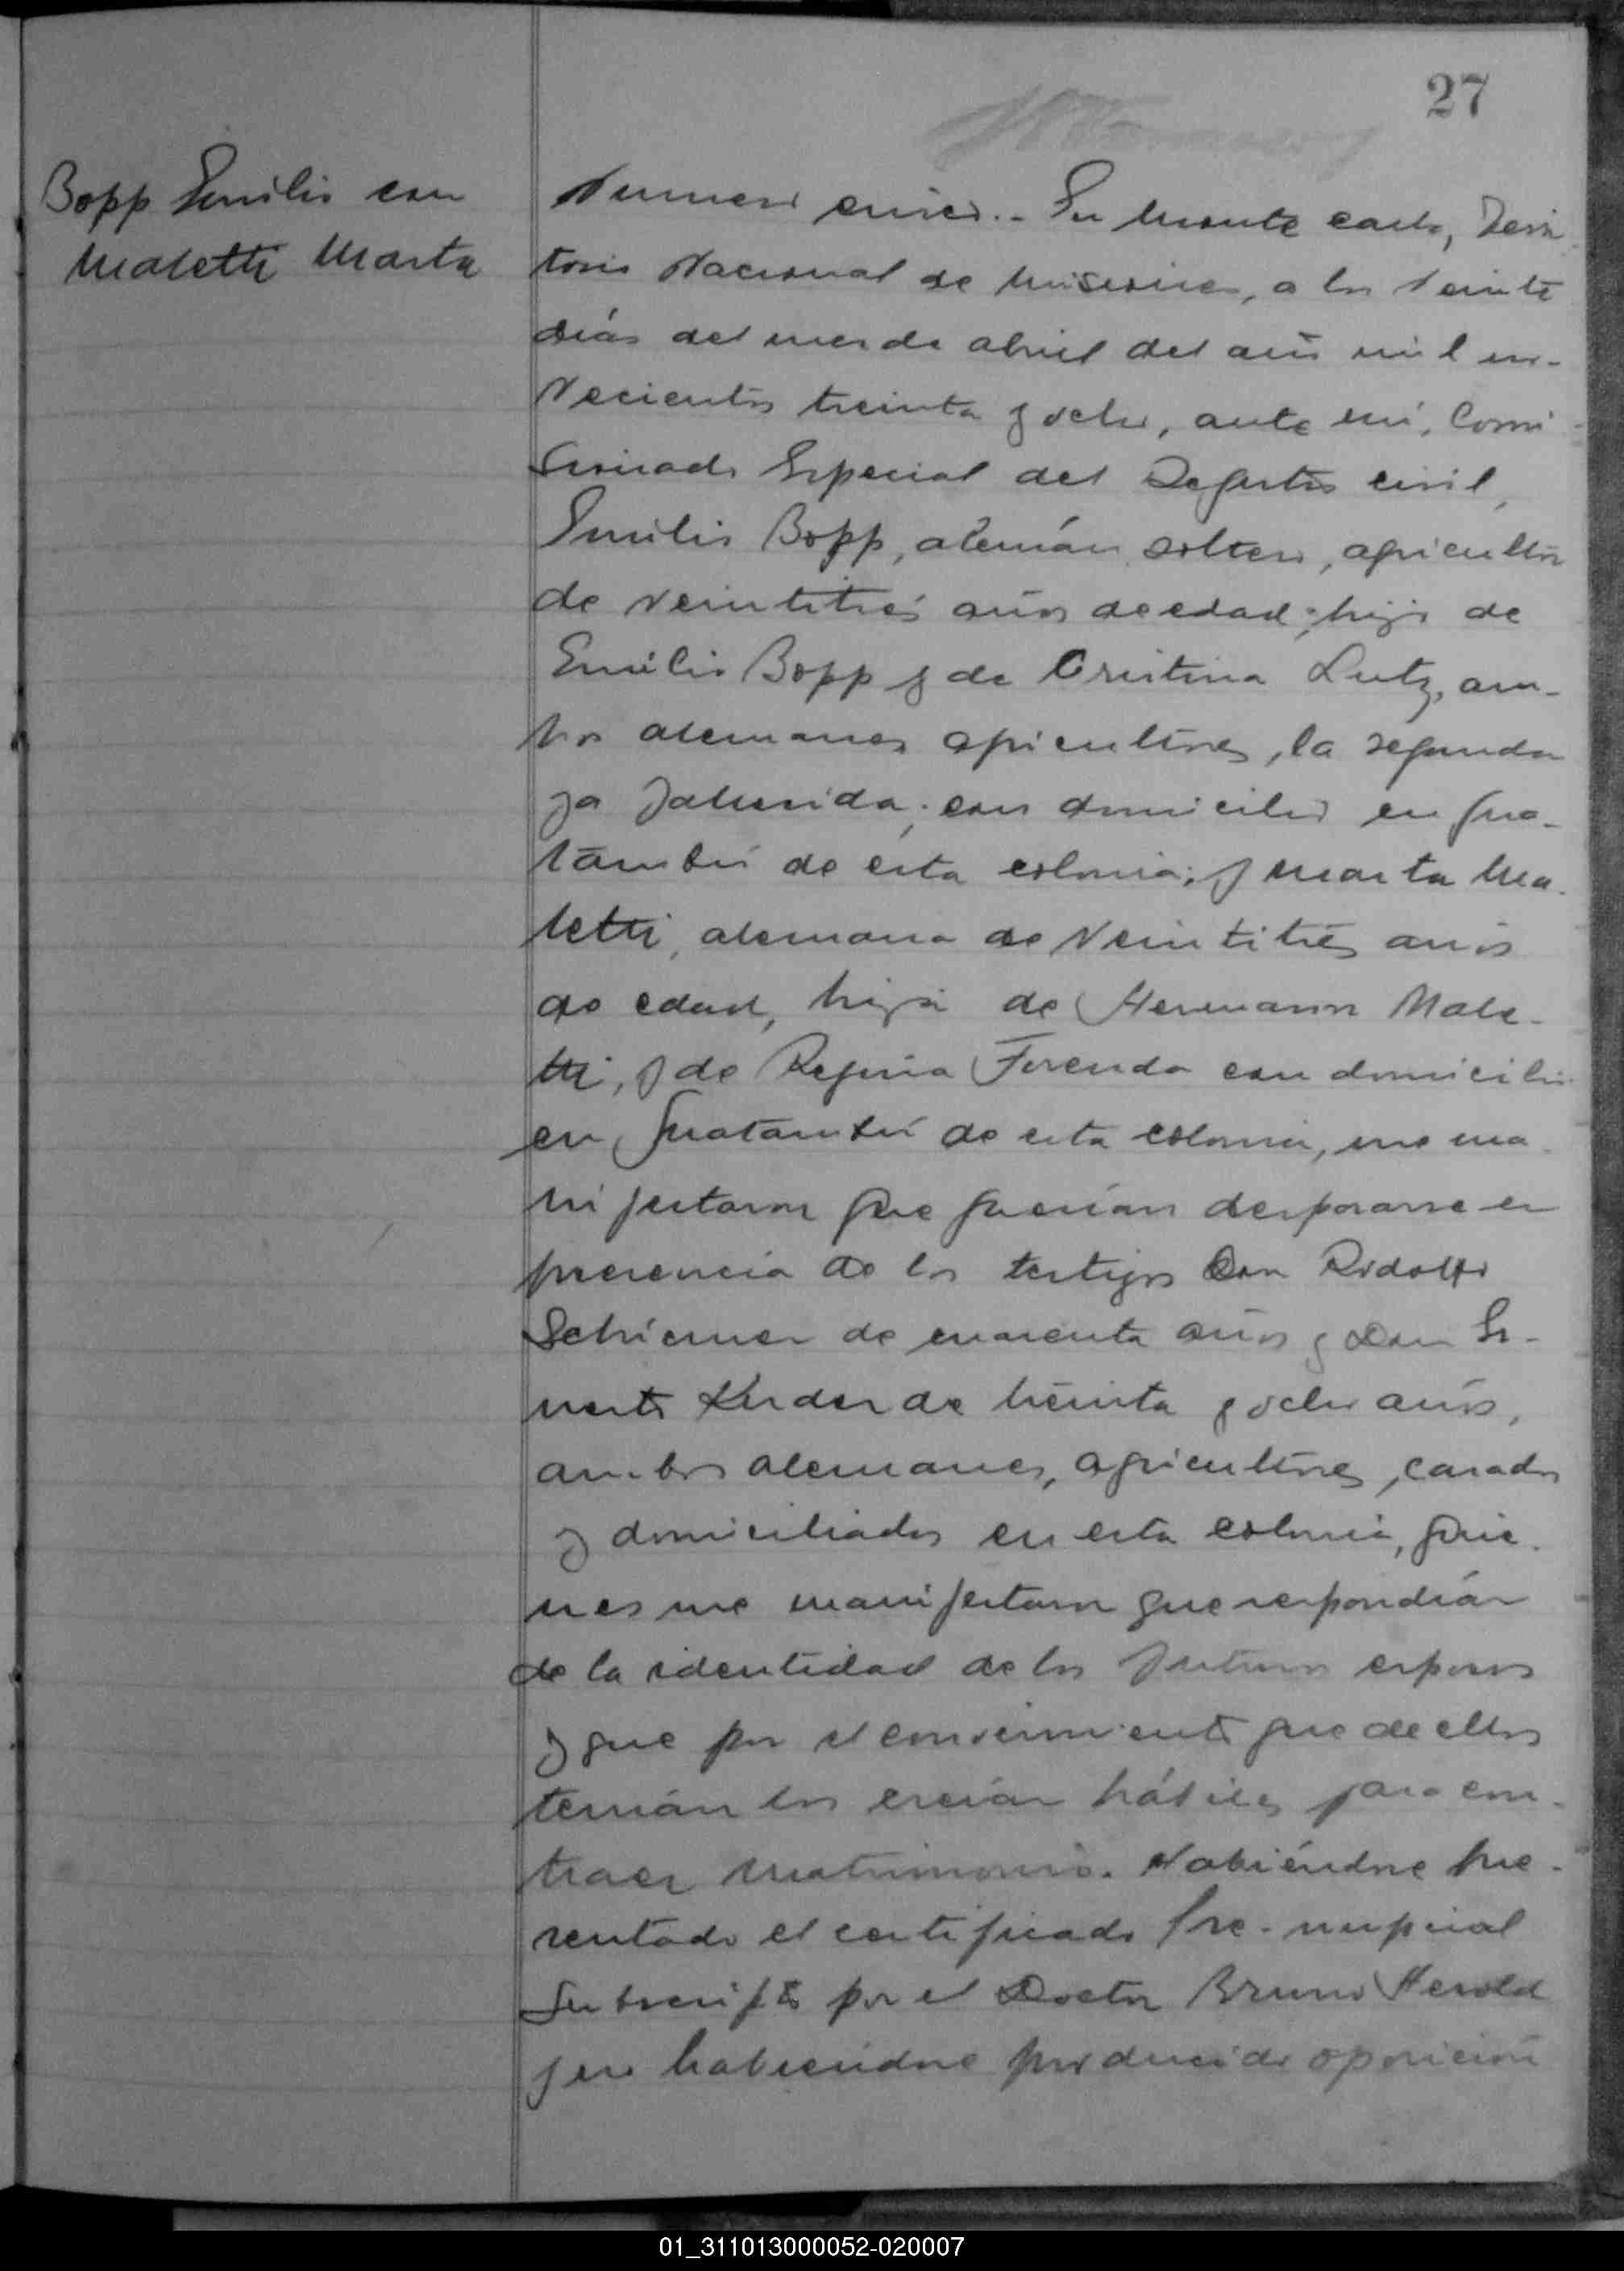 27
Bopp Emilio con
Maletti Marta
Numero cinco.- En Monte carlo, Terri
torio Nacional de Misiones, a los veinte
días del mes de abril del año mil no-
vecientos treinta y ocho, ante mí, Comi
sionado Especial del Registro civil,
Emilio Bopp, alemán soltero, agricultor
de veintitrés años de edad; hijo de
Emilio Bopp y de Cristina Lutz, am-
bos alemanes agricultores, la segunda
ya fallecida; con domicilio en Gua-
tambú de esta colonia; y Marta Ma-
letti, alemana de veintitrés años
de edad, hija de Hermann Male-
tti, y de Regina Forenda con domicilio
en Guatambú de esta colonia, me ma-
nifestaron que querían desposarse en
presencia de los testigos Don Rodolfo
Schiemer de cuarenta años y Don Er-
nesto Kurder de treinta y ocho años,
ambos alemanes, agricultores, casados
y domiciliados en esta colonia, quie-
nes me manifestaron que respondían
de la identidad de los futuros esposos
y que por el conocimiento que de ellos
tenían los creían hábiles para con-
traer matrimonio. Habiéndose pre-
sentado el certificado pre-nupcial
subscripto por el Doctor Bruno Herold
y no habiendose producido oposición
01_311013000052-020007